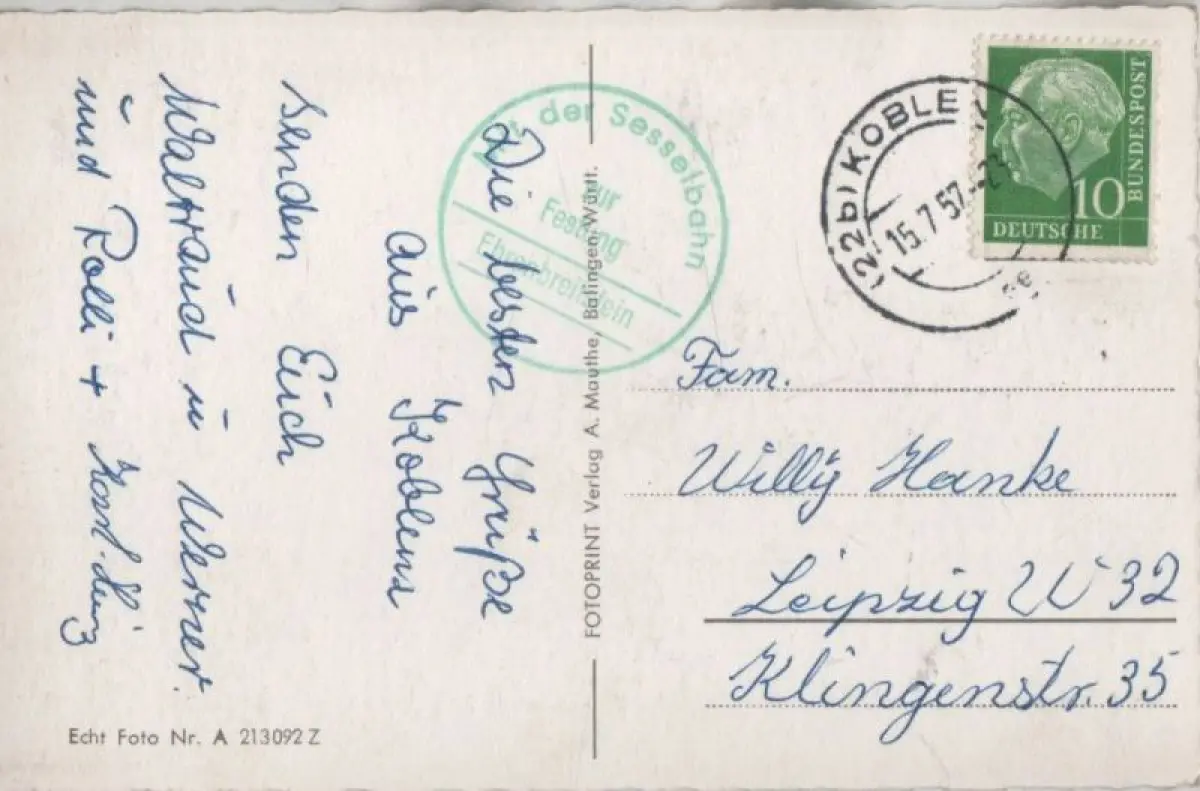 Die besten Grüße
aus Koblenz
senden Euch
Waltraud u Werner.
und Rolli +
Mit der Sesselbahn
zur
Festung
Ehrenbreitstein
FOTOPRINT Verlag A. Mauthe, Balingen-Württ.
(22b) KOBLE
15.7.57.-23
DEUTSCHE
BUNDESPOST
10
Fam.
Willy Hanke
Leipzig W 32
Klingenstr. 35
Echt Foto Nr. A 213092 Z